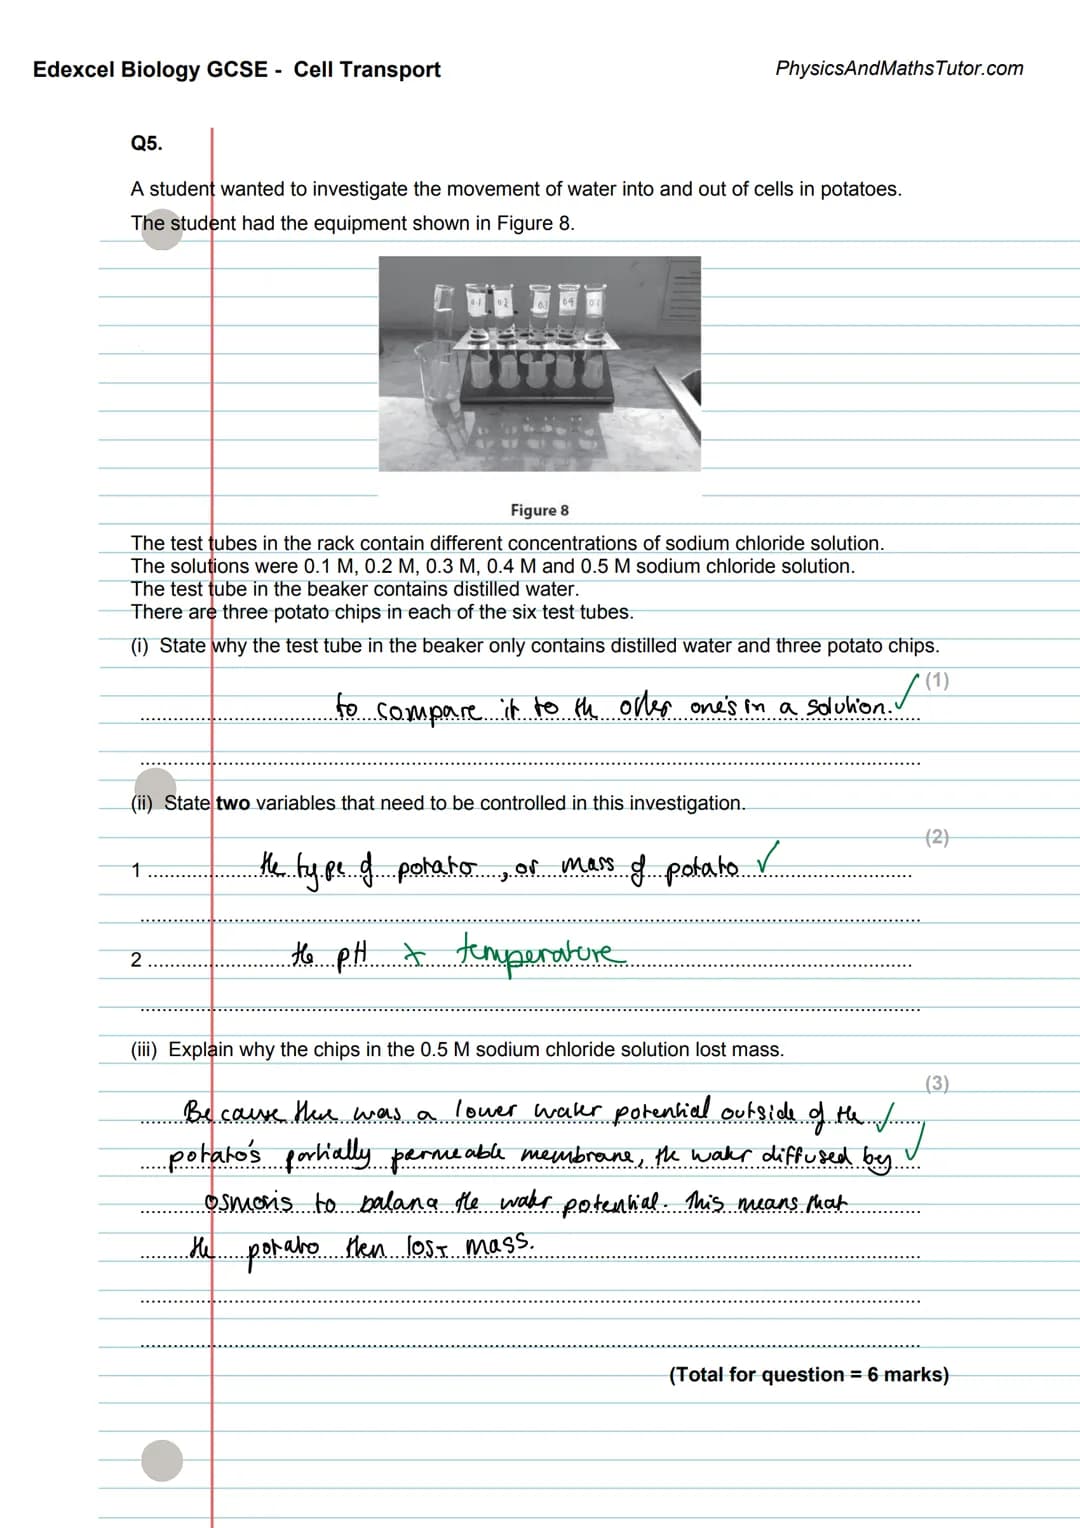 Edexcel Biology GCSE - Cell Transport
PhysicsAndMathsTutor.com
Q5.
A student wanted to investigate the movement of water into and out of cells in potatoes.
The student had the equipment shown in Figure 8.
0.1 0.2 0.3 0.4
Figure 8
The test tubes in the rack contain different concentrations of sodium chloride solution.
The solutions were 0.1 M, 0.2 M, 0.3 M, 0.4 M and 0.5 M sodium chloride solution.
The test tube in the beaker contains distilled water.
There are three potato chips in each of the six test tubes.
(i) State why the test tube in the beaker only contains distilled water and three potato chips.
(1)
to compare it to the other one's in a solution. ✓
(ii) State two variables that need to be controlled in this investigation.
(2)
1 the type of potato, or mass of potato ✓
2 the pH x temperature
(iii) Explain why the chips in the 0.5 M sodium chloride solution lost mass.
(3)
Because there was a lower water potential outside of the ✓
potato's partially permeable membrane, the water diffused by ✓
osmosis to balance the water potential. This means that
the potato then lost mass.
(Total for question = 6 marks)